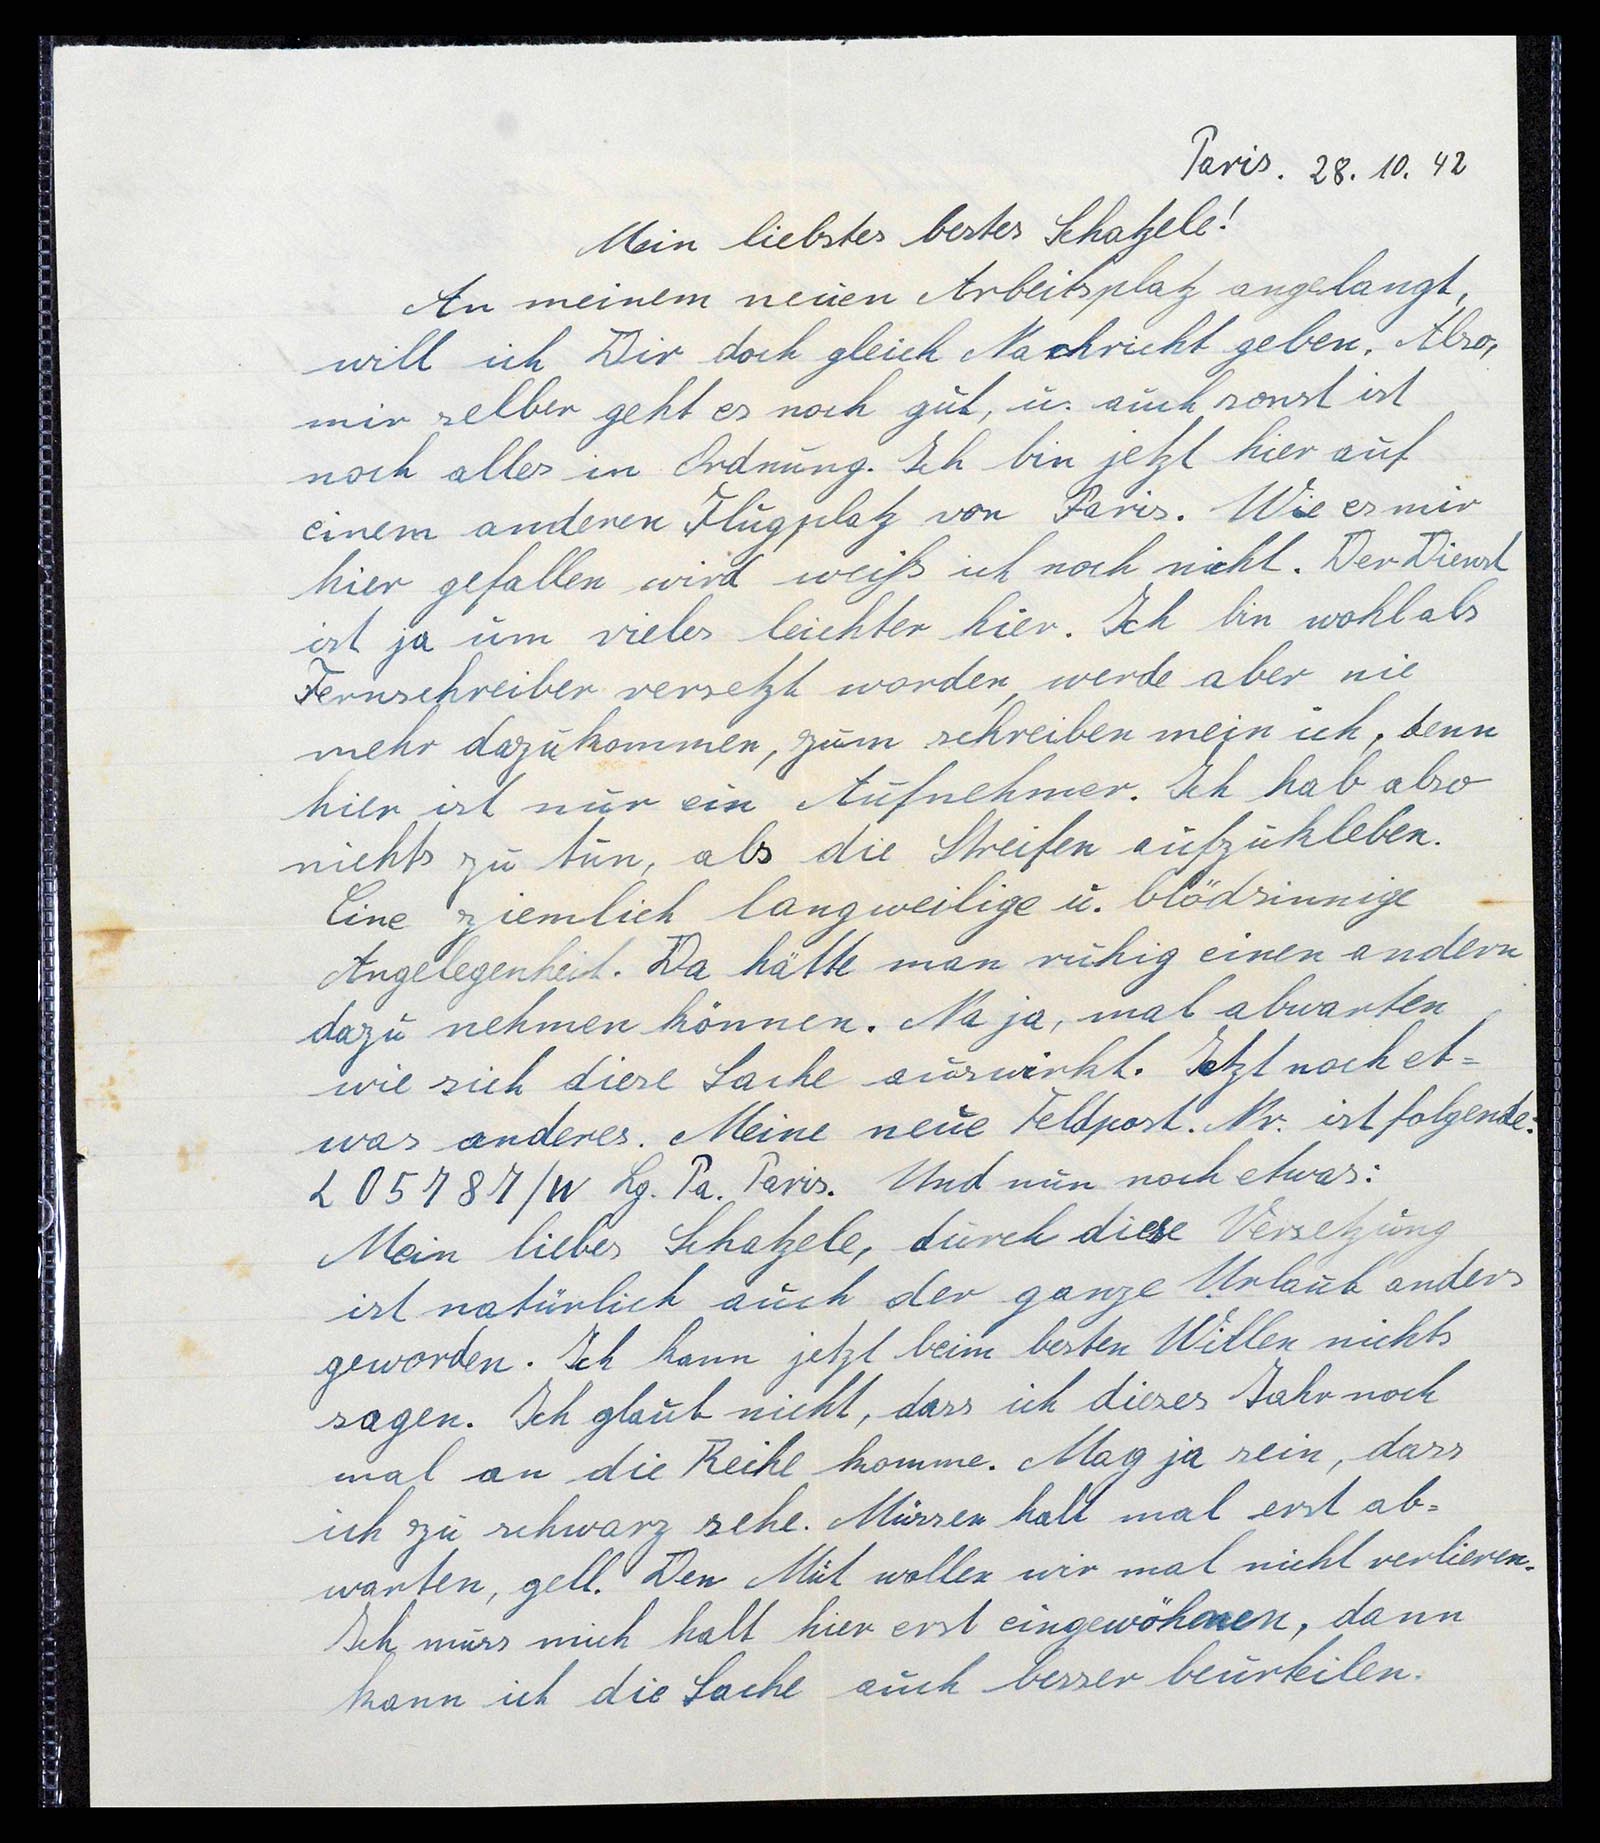 Paris. 28. 10. 42
Mein liebstes bestes Schatzele!
An meinem neuen Arbeitsplatz angelangt,
will ich Dir doch gleich Nachricht geben. Also,
mir selber geht es noch gut, u. auch sonst ist
noch alles in Ordnung. Ich bin jetzt hier auf
einem anderen Flugplatz von Paris. Wie es mir
hier gefallen wird weiß ich noch nicht. Der Dienst
ist ja um vieles leichter hier. Ich bin wohl als
Fernschreiber versetzt worden, werde aber nie
mehr dazukommen, zum schreiben mein ich, denn
hier ist nur ein Aufnehmer. Ich hab also
nichts zu tun, als die Streifen aufzukleben.
Eine ziemlich langweilige u. blödsinnige
Angelegenheit. Da hätte man ruhig einen andern
dazu nehmen können. Na ja, mal abwarten
wie sich diese Sache auswirkt. Jetzt noch et=
was anderes. Meine neue Feldpost. Nr. ist folgende:
L 05787/W Lg. Pa. Paris. Und nun noch etwas:
Mein liebes Schatzele, durch diese Versetzung
ist natürlich auch der ganze Urlaub anders
geworden. Ich kann jetzt beim besten Willen nichts
sagen. Ich glaub nicht, dass ich dieses Jahr noch
mal an die Reihe komme. Mag ja sein, dass
ich zu schwarz sehe. Müssen halt mal erst ab=
warten, gell. Den Mut wollen wir mal nicht verlieren.
Ich muss mich halt hier erst eingewöhnen, dann
kann ich die Sache auch besser beurteilen.